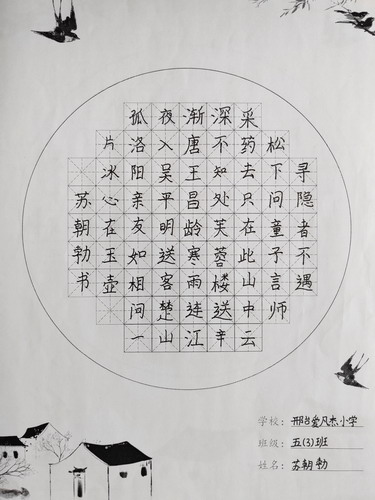 寻隐者不遇
松下问童子言师
采药去只在此山中云
深不知处芙蓉楼送辛
渐唐王昌龄寒雨连江
夜入吴平明送客楚山
孤洛阳亲友如相问一
片冰心在玉壶
苏朝勃书
学校：邢台爱凡杰小学
班级：五(3)班
姓名：苏朝勃